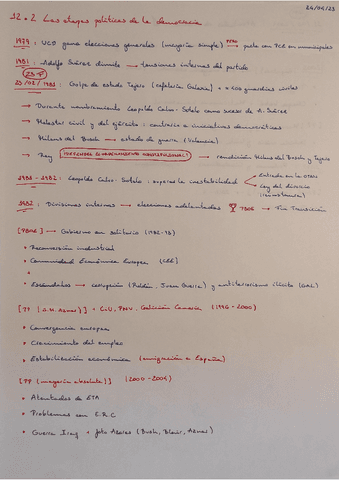 24/04/23
12.2 Las etapas políticas de la democracia
1979 : UCD gana elecciones generales (mayoría simple) → pacta con PCE en municipales
PSOE
1981 : Adolfo Suárez dimite → tensiones internas del partido
23-F
23/02/1981 : Golpe de estado Tejero (cafetería Galaxia) = guardias civiles
→ Durante nombramiento Leopoldo Calvo-Sotelo como sucesor de A. Suárez
→ Malestar civil y del ejército : contrario a iniciativas democráticas
→ Milans del Bosch → estado de guerra (Valencia)
→ Rey DEFENDER EL ORDENAMIENTO CONSTITUCIONAL → rendición Milans del Bosch y Tejero
1981-1982 : Leopoldo Calvo-Sotelo : superar la inestabilidad
Entrada en la OTAN
Ley del divorcio
1982 : Divisiones internas → elecciones adelantadas PSOE → Fin Transición
[PSOE] → Gobierno en solitario (1982-93)
• Reconversión industrial
• Comunidad Económica Europea (CEE)
•
• Escándalos → corrupción (Roldán, Juan Guerra) y antiterrorismo ilícito (GAL)
[PP (J.M. Aznar)] + CiU, PNV, Coalición Canaria (1996-2000)
• Convergencia europea
• Crecimiento del empleo
• Estabilización económica (inmigración a España)
[PP (mayoría absoluta)] (2000-2004)
• Atentados de ETA
• Problemas con E.R.C
• Guerra Iraq → foto Azores (Bush, Blair, Aznar)